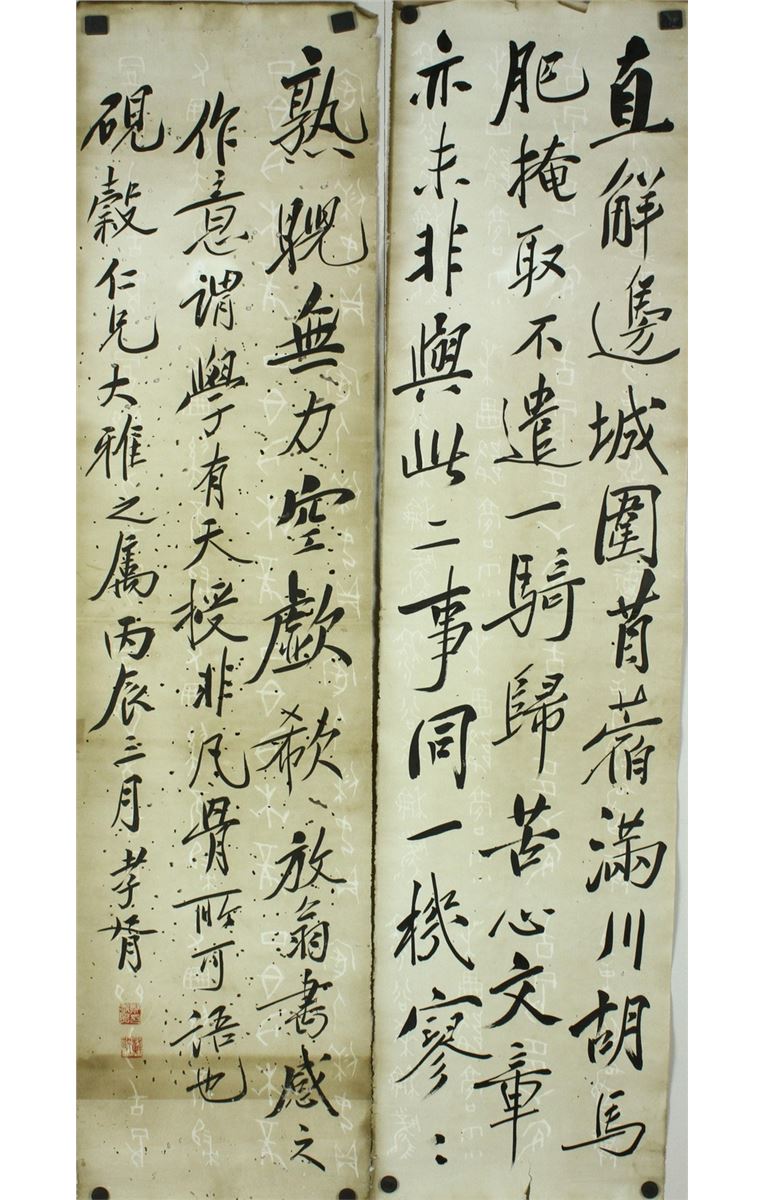 直解邊城圍苜蓿滿川胡馬
肥掩取不遣一騎歸苦心文章
亦未非與此二事同一機寥〻
熟睨無力空歔欷放翁書感之
作意謂學有天授非凡骨所可語也
硯穀仁兄大雅之属丙辰三月孝胥